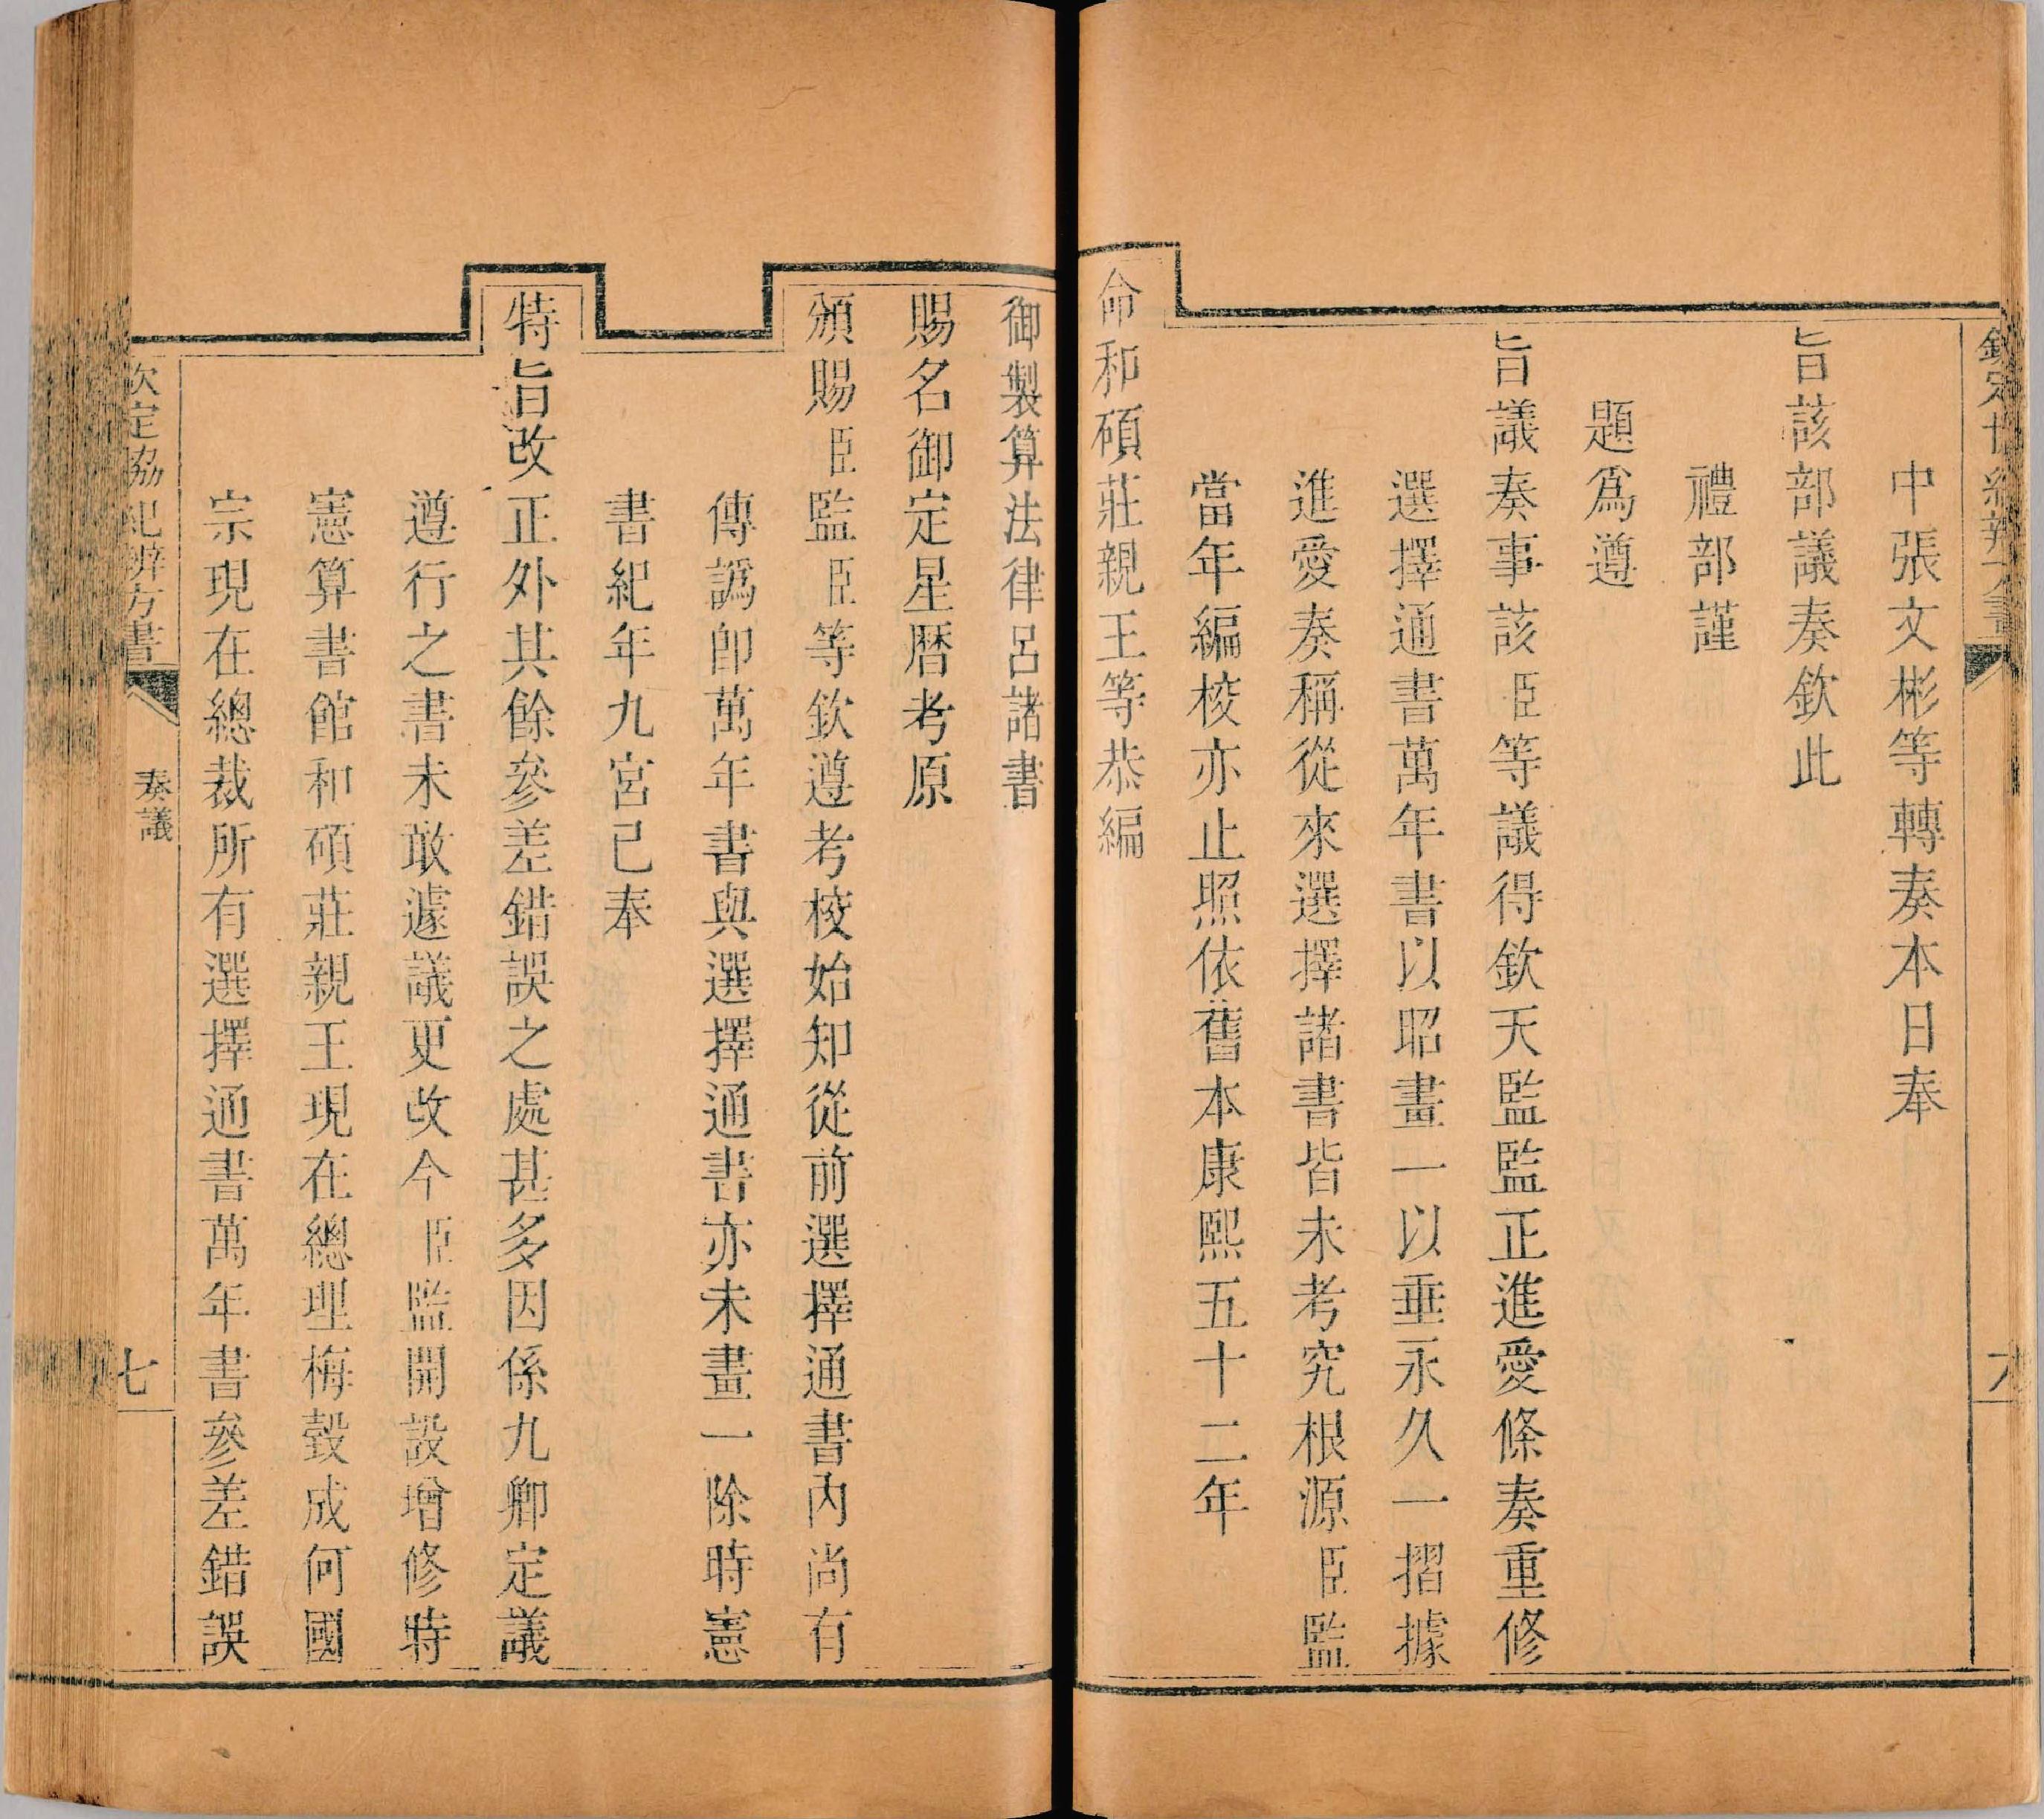 中張文彬等轉奏本日奉
旨該部議奏欽此
禮部謹
題爲遵
旨議奏事該臣等議得欽天監監正進愛條奏重修
選擇通書萬年書以昭畫一以垂永久一摺據
進愛奏稱從來選擇諸書皆未考究根源臣監
當年編校亦止照依舊本康熙五十二年
命和碩莊親王等恭編
御製算法律呂諸書
賜名御定星曆考原
頒賜臣監臣等欽遵考校始知從前選擇通書內尚有
傳譌卽萬年書與選擇通書亦未畫一除時憲
書紀年九宮已奉
特旨改正外其餘參差錯誤之處甚多因係九卿定議
遵行之書未敢遽議更改今臣監開設增修時
憲算書館和碩莊親王現在總理梅㲄成何國
宗現在總裁所有選擇通書萬年書參差錯誤
欽定協紀辨方書
奏議
七